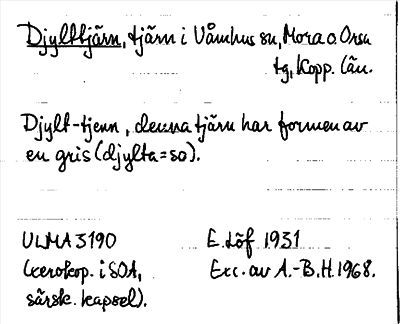 Djylttjärn, tjärn i Våmhus sn, Mora o. Orsa
tg, Kopp. län.
Djylt-tjenn, denna tjärn har formen av
en gris (djylta = so).
ULMA 3190
(xerokop. i SOA,
särsk. kapsel).
E. Löf 1931
Exc. av A.-B. H. 1968.